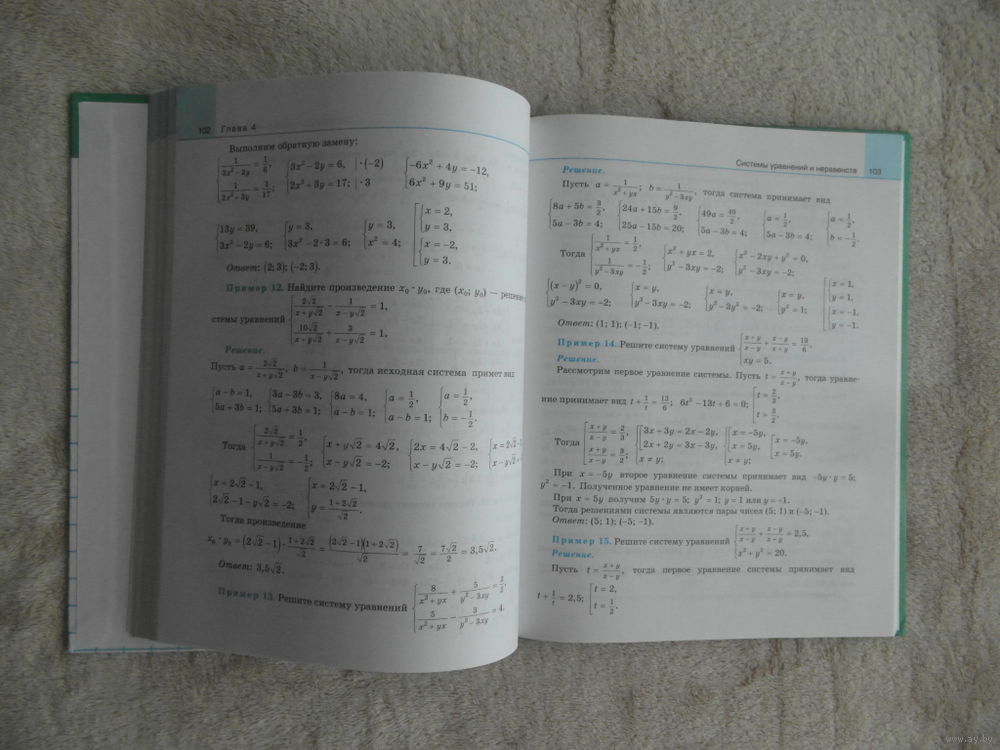 102 Глава 4
Выполним обратную замену:
{1/(3x²−2y) = 1/6, 1/(2x²+3y) = 1/17; {3x²−2y = 6, 2x²+3y = 17; |·(−2) |·3 {−6x²+4y = −12, 6x²+9y = 51;
{13y = 39, 3x²−2y = 6; {y = 3, 3x²−2·3 = 6; {y = 3, x² = 4; [{x = 2, y = 3, {x = −2, y = 3.
Ответ: (2; 3); (−2; 3).
Пример 12. Найдите произведение x₀ · y₀, где (x₀; y₀) — решение
стемы уравнений {2√2/(x+y√2) − 1/(x−y√2) = 1, 10√2/(x+y√2) + 3/(x−y√2) = 1.
Решение.
Пусть a = 2√2/(x+y√2), b = 1/(x−y√2), тогда исходная система примет вид
{a−b = 1, 5a+3b = 1; {3a−3b = 3, 5a+3b = 1; {8a = 4, a−b = 1; {a = 1/2, a−b = 1; {a = 1/2, b = −1/2.
Тогда {2√2/(x+y√2) = 1/2, 1/(x−y√2) = −1/2; {x+y√2 = 4√2, x−y√2 = −2; {2x = 4√2−2, x−y√2 = −2; {x = 2√2−1, x−y√2
{x = 2√2−1, 2√2−1−y√2 = −2; {x = 2√2−1, y = (1+2√2)/√2.
Тогда произведение
x₀ · y₀ = (2√2−1) · (1+2√2)/√2 = (2√2−1)(1+2√2)/√2 = 7/√2 = 7√2/2 = 3,5√2.
Ответ: 3,5√2.
Пример 13. Решите систему уравнений {8/(x²+yx) + 5/(y²−3xy) = 3/2, 5/(x²+yx) − 3/(y²−3xy) = 4.
Системы уравнений и неравенств 103
Решение.
Пусть a = 1/(x²+yx); b = 1/(y²−3xy), тогда система принимает вид
{8a+5b = 3/2, 5a−3b = 4; {24a+15b = 9/2, 25a−15b = 20; {49a = 49/2, 5a−3b = 4; {a = 1/2, 5a−3b = 4; {a = 1/2, b = −1/2.
Тогда {1/(x²+yx) = 1/2, 1/(y²−3xy) = −1/2; {x²+yx = 2, y²−3xy = −2; {x²−2xy+y² = 0, y²−3xy = −2;
{(x−y)² = 0, y²−3xy = −2; {x = y, y²−3xy = −2; {x = y, y²−3y² = −2; {x = y, y² = 1; [{x = 1, y = 1, {x = −1, y = −1.
Ответ: (1; 1); (−1; −1).
Пример 14. Решите систему уравнений {(x+y)/(x−y) + (x−y)/(x+y) = 13/6, xy = 5.
Решение.
Рассмотрим первое уравнение системы. Пусть t = (x+y)/(x−y), тогда уравне-
ние принимает вид t + 1/t = 13/6; 6t²−13t+6 = 0; [t = 2/3, t = 3/2.
Тогда [(x+y)/(x−y) = 2/3, (x+y)/(x−y) = 3/2; {[3x+3y = 2x−2y, 2x+2y = 3x−3y, x ≠ y; {[x = −5y, x = 5y, x ≠ y; [x = −5y, x = 5y.
При x = −5y второе уравнение системы принимает вид −5y·y = 5;
y² = −1. Полученное уравнение не имеет корней.
При x = 5y получим 5y·y = 5; y² = 1; y = 1 или y = −1.
Тогда решениями системы являются пары чисел (5; 1) и (−5; −1).
Ответ: (5; 1); (−5; −1).
Пример 15. Решите систему уравнений {(x+y)/(x−y) + (x−y)/(x+y) = 2,5, x²+y² = 20.
Решение.
Пусть t = (x+y)/(x−y), тогда первое уравнение системы принимает вид
t + 1/t = 2,5; [t = 2, t = 1/2.
www.ay.by